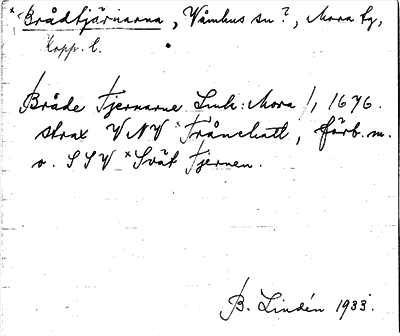 ×Brådtjärnarna, Våmhus sn?, Mora tg,
Kopp. l.
Bråde Tjernarne Link: Mora /, 1676.
strax VNV ×Trånshatt, förb. m.
o. SSV ×Svät Tjernen.
B. Lindén 1933.